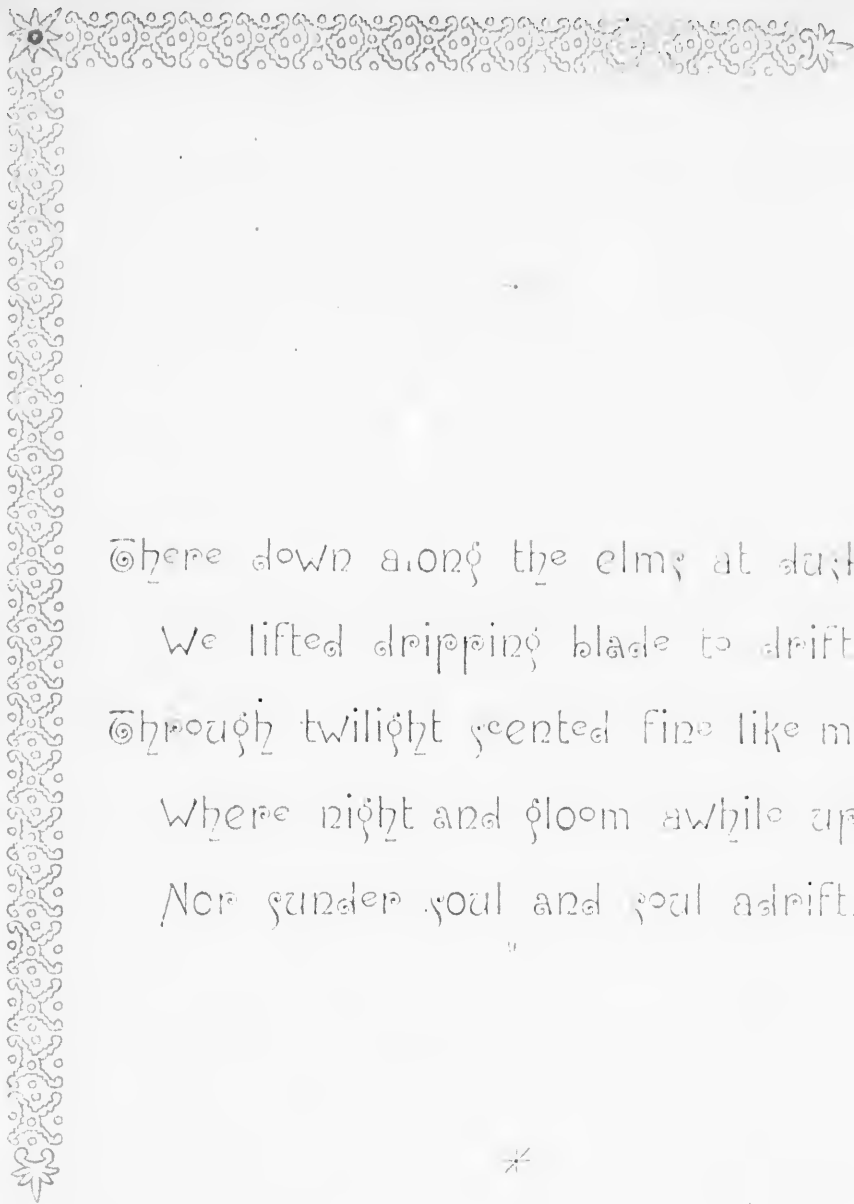 There down along the elms at dusk
We lifted dripping blade to drift
Through twilight scented fine like
Where night and gloom awhile
Nor sunder soul and soul adrift.